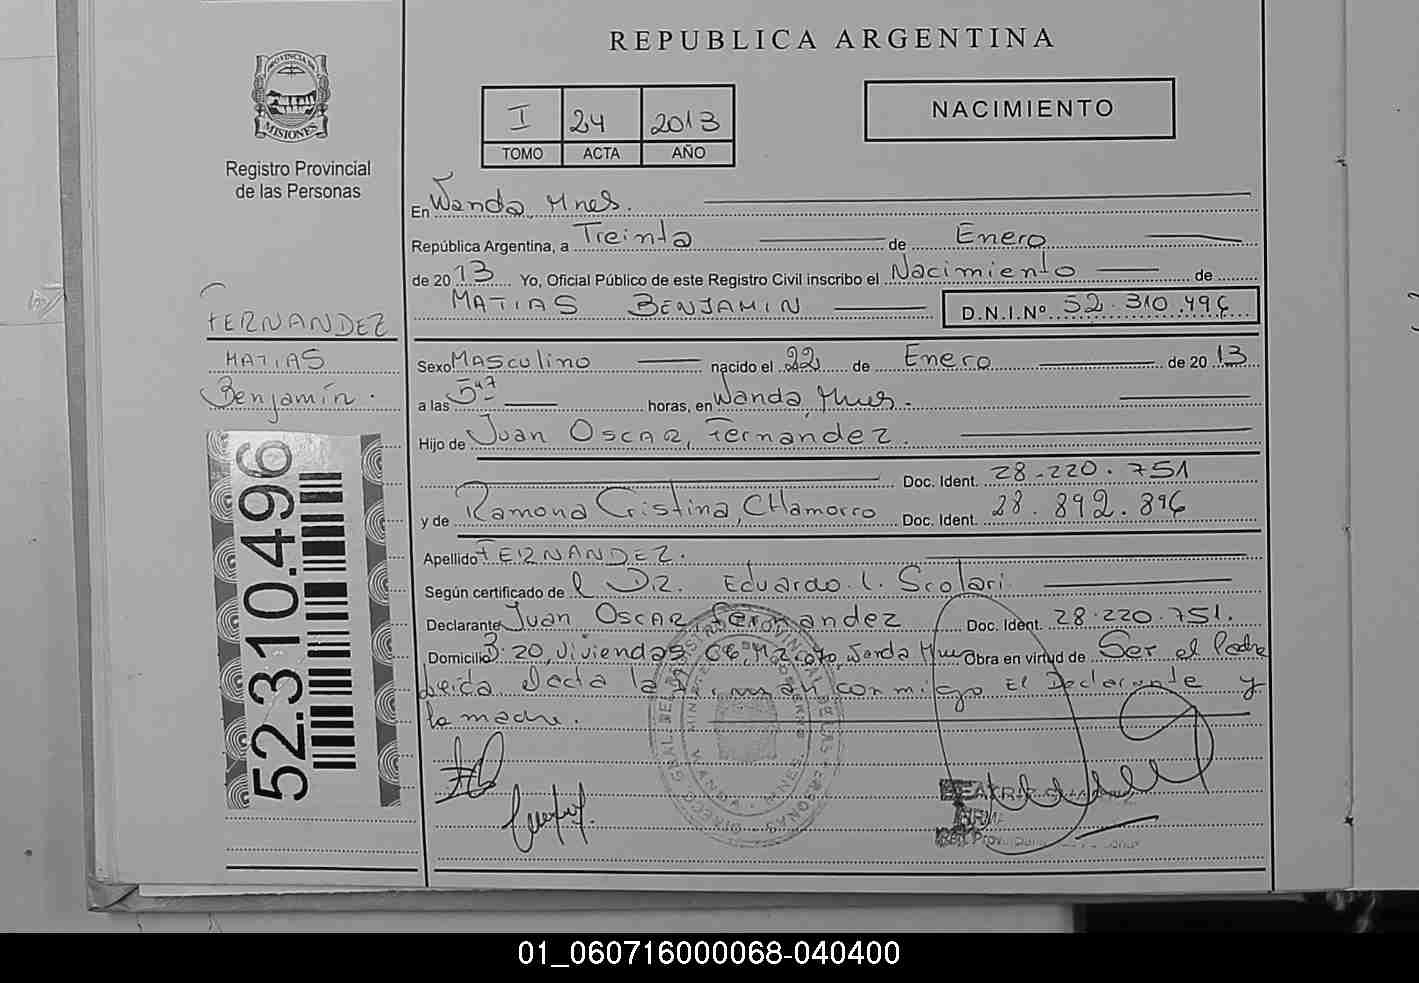 REPUBLICA ARGENTINA
PROVINCIA DE
MISIONES
Registro Provincial
de las Personas
I 24 2013
TOMO ACTA AÑO
NACIMIENTO
En Wanda, Mnes.
República Argentina, a Treinta de Enero
de 2013 Yo, Oficial Público de este Registro Civil inscribo el Nacimiento de
MATIAS BENJAMIN D.N.I.Nº 52.310.496
FERNANDEZ
MATIAS
Benjamín.
52.310.496
Sexo Masculino nacido el 22 de Enero de 2013
a las 5 horas, en Wanda, Mnes.
Hijo de Juan Oscar, Fernández.
Doc. Ident. 28.220.751
y de Ramona Cristina, CHamorro Doc. Ident. 28.892.896
Apellido FERNANDEZ.
Según certificado de l Dr. Eduardo. L. Scolari
Declarante Juan Oscar, Fernandez Doc. Ident. 28.220.751.
Domicilio B: 20, Viviendas Wanda Mnes Obra en virtud de Ser el Padre
Leida el acta la firman conmigo El Declarante y
la madre.
01_060716000068-040400